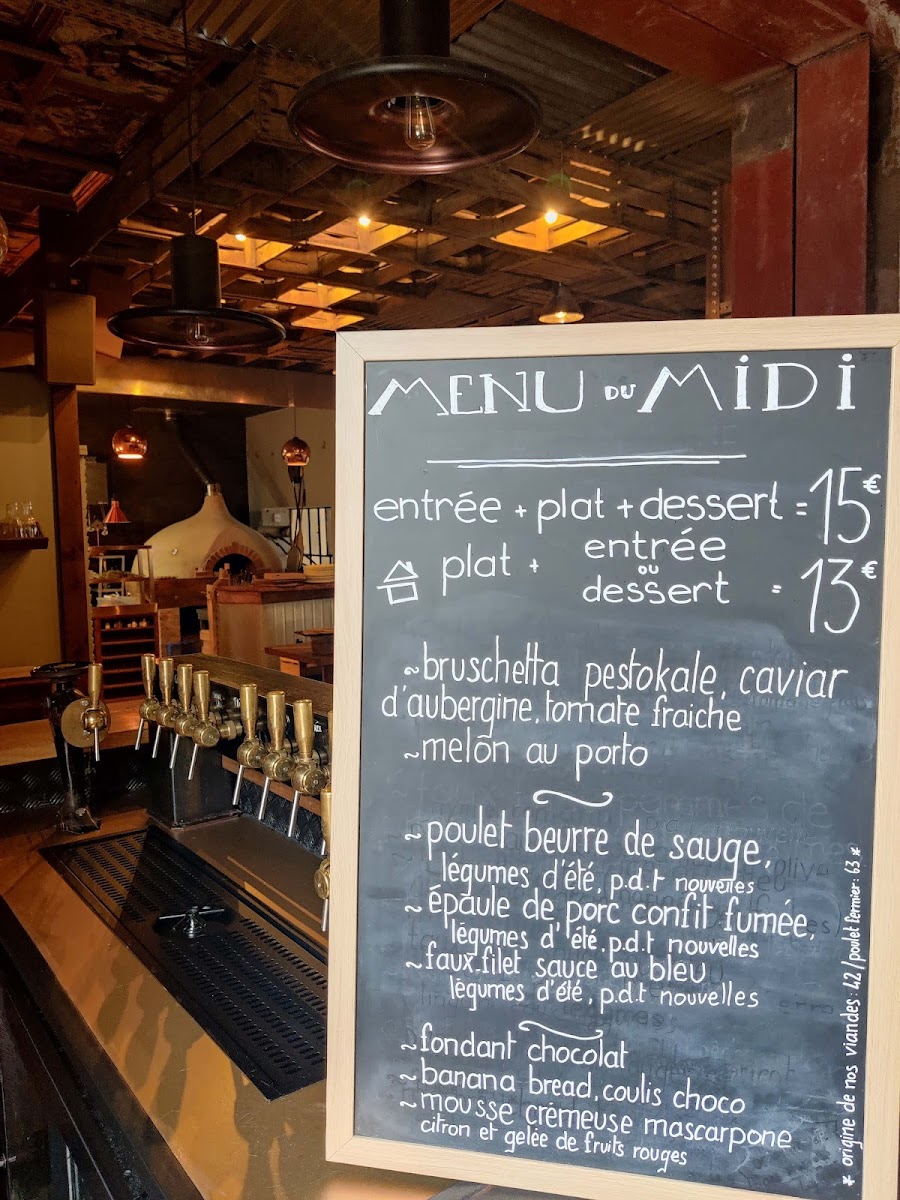 MENU DU MIDI
entrée + plat + dessert = 15€
plat + entrée ou dessert = 13€
~bruschetta pestokale, caviar
d'aubergine, tomate fraiche
~melon au porto
~poulet beurre de sauge,
légumes d'été, p.d.t nouvelles
~épaule de porc confit fumée,
légumes d'été, p.d.t nouvelles
~faux-filet sauce au bleu
légumes d'été, p.d.t nouvelles
~fondant chocolat
~banana bread, coulis choco
~mousse crémeuse mascarpone
citron et gelée de fruits rouges
* origine de nos viandes : 42 / poulet fermier : 63 *